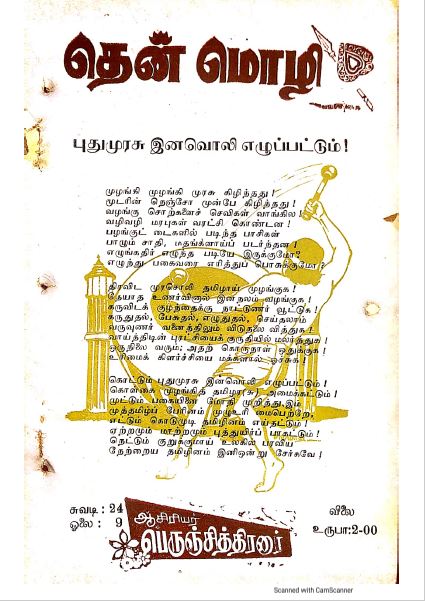 தென் மொழி
புதுமுரசு இனவொலி எழுப்பட்டும்!
முழங்கி முழங்கி முரசு கிழிந்தது!
முடரின் நெஞ்சோ முன்பே கிழிந்தது!
வழங்கு சொற்களைச் செவிகள் வாங்கில!
வழிவழி மரபுகள் வரட்சி கொண்டன!
பழங்குட் டைகளில் படிந்த பாசிகள்
பாழும் சாதி, மதங்களாய்ப் படர்ந்தன!
எழுங்கதிர் எழுந்த படியே இருக்குமோ?
எழுந்து பகைவரை எரித்துப் பொசுக்குமோ?
திராவிட முரசொலி தமிழாய் முழங்குக!
தேயாத உணர்வினால் இனநலம் வழங்குக!
கருவிடக் குழந்தைக்கு நாட்டுணர் வூட்டுக!
கருதுதல், பேசுதல், எழுதுதல், செய்தலாம்
வருவுணர் வனைத்திலும் விடுதலை வித்துக!
வாய்த்திடின் புரட்சியைக் குருதியில் மலர்த்துக!
ஒருநிலை வரும்; அதற் கொருநாள் ஒதுக்குக!
உரிமைக் கிளர்ச்சியை மக்களால்
கொட்டும் புதுமுரசு இனவொலி எழுப்பட்டும்!
கொள்கை முழங்கித் தமிழர(சு) அமைக்கட்டும்!
முட்டும் பகையினை மோதி முறித்து,இம்
முத்தமிழ்ப் பேரினம் முழுஉரி மைபெற்றே,
எட்டும் கொடுமுடி தமிழினம் எய்தட்டும்!
ஏற்றமும் மாற்றமும் புத்துயிர்ப் பாகட்டும்!
நெட்டும் குறுக்குமாய் உலகில் பரவிய
நேற்றைய தமிழினம் இனிஒன்று சேர்கவே!
சுவடி: 24
ஓலை: 9
ஆசிரியர்
பெருஞ்சித்திரனார்
விலை
உருபா:2-00
Scanned with CamScanner